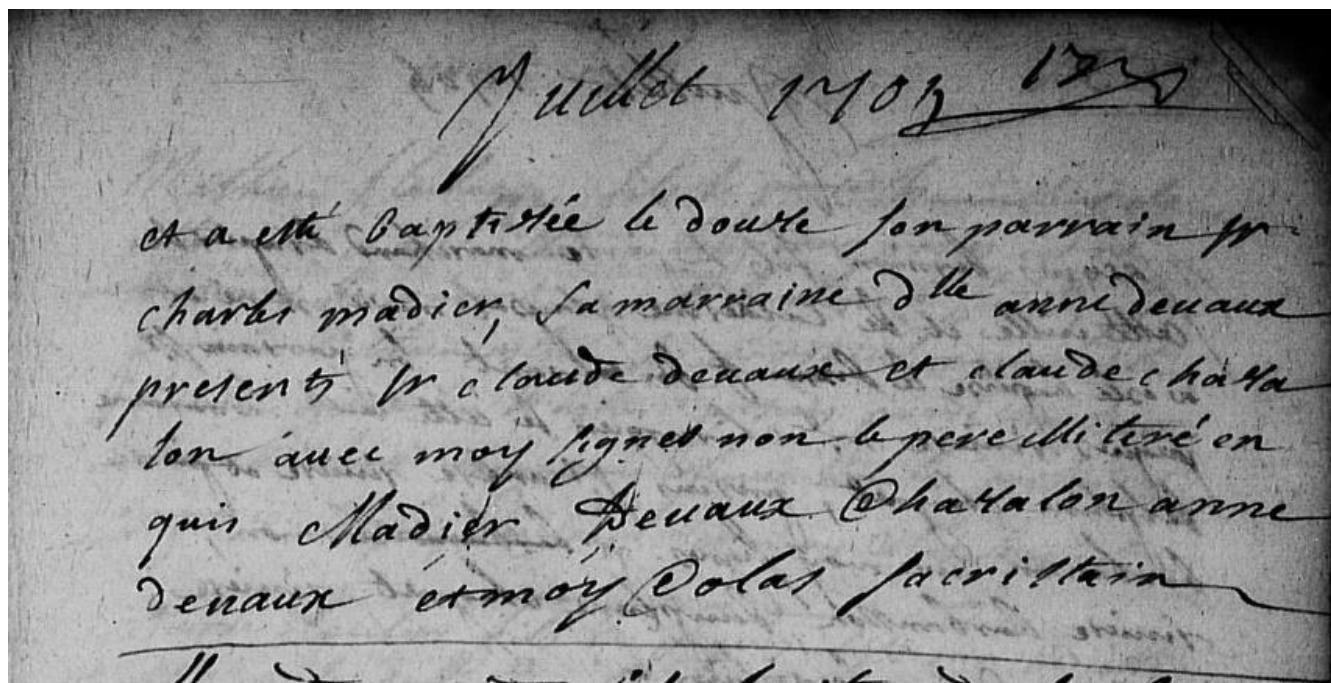 Juillet 1703
et a esté baptizée le douze son parrain sr
charles madier, sa marraine dlle anne devaux
presents sr claude devaux et claude chaza
lon avec moy signes non le pere illiteré en
quis Madier Devaux Chazalon anne
devaux et moy Colas sacristain